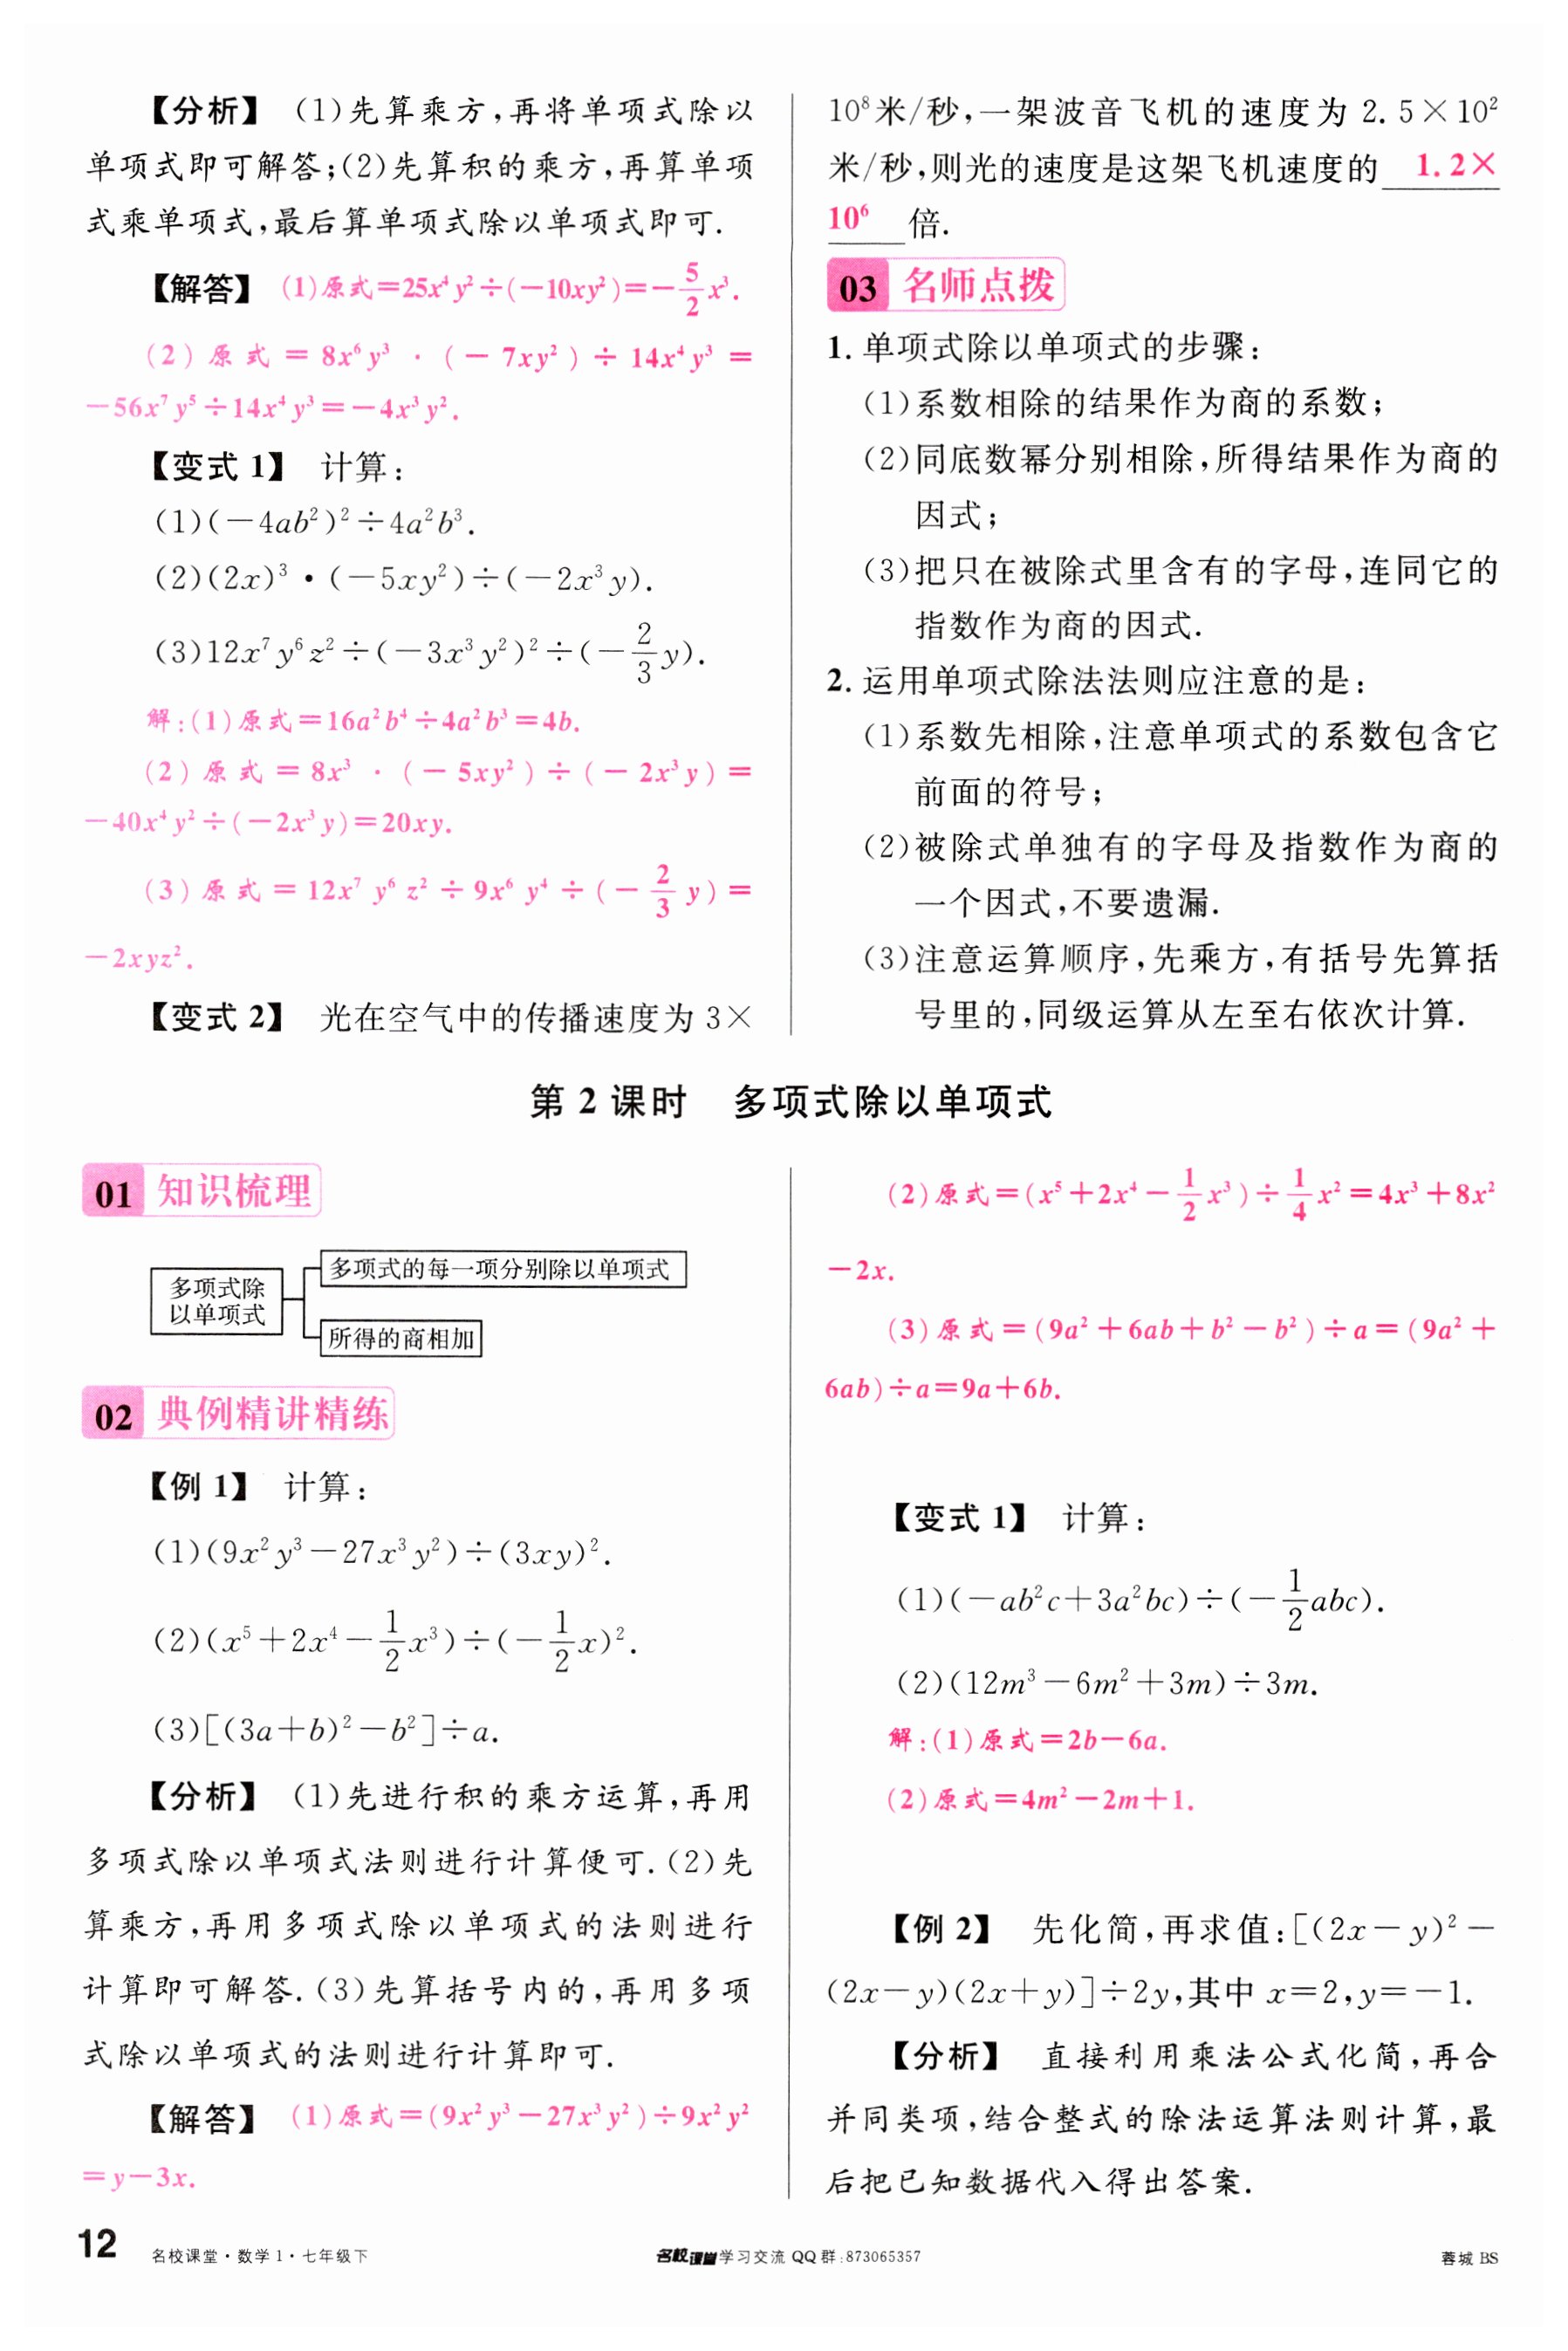 【分析】 (1)先算乘方,再将单项式除以
单项式即可解答;(2)先算积的乘方,再算单项
式乘单项式,最后算单项式除以单项式即可.
【解答】 (1)原式=25x⁴y²÷(-10xy²)=-5/2x³.
(2)原式=8x⁶y³·(-7xy²)÷14x⁴y³=
-56x⁷y⁵÷14x⁴y³=-4x³y².
【变式 1】 计算:
(1)(-4ab²)²÷4a²b³.
(2)(2x)³·(-5xy²)÷(-2x³y).
(3)12x⁷y⁶z²÷(-3x³y²)²÷(-2/3y).
解:(1)原式=16a²b⁴÷4a²b³=4b.
(2)原式=8x³·(-5xy²)÷(-2x³y)=
-40x⁴y²÷(-2x³y)=20xy.
(3)原式=12x⁷y⁶z²÷9x⁶y⁴÷(-2/3y)=
-2xyz².
【变式 2】 光在空气中的传播速度为 3×
10⁸米/秒,一架波音飞机的速度为 2.5×10²
米/秒,则光的速度是这架飞机速度的 1.2×
10⁶ 倍.
03 名师点拨
1. 单项式除以单项式的步骤:
(1)系数相除的结果作为商的系数;
(2)同底数幂分别相除,所得结果作为商的
因式;
(3)把只在被除式里含有的字母,连同它的
指数作为商的因式.
2. 运用单项式除法法则应注意的是:
(1)系数先相除,注意单项式的系数包含它
前面的符号;
(2)被除式单独有的字母及指数作为商的
一个因式,不要遗漏.
(3)注意运算顺序,先乘方,有括号先算括
号里的,同级运算从左至右依次计算.
第 2 课时 多项式除以单项式
01 知识梳理
多项式除
以单项式
多项式的每一项分别除以单项式
所得的商相加
02 典例精讲精练
【例 1】 计算:
(1)(9x²y³-27x³y²)÷(3xy)².
(2)(x⁵+2x⁴-1/2x³)÷(-1/2x)².
(3)[(3a+b)²-b²]÷a.
【分析】 (1)先进行积的乘方运算,再用
多项式除以单项式法则进行计算便可.(2)先
算乘方,再用多项式除以单项式的法则进行
计算即可解答.(3)先算括号内的,再用多项
式除以单项式的法则进行计算即可.
【解答】 (1)原式=(9x²y³-27x³y²)÷9x²y²
=y-3x.
(2)原式=(x⁵+2x⁴-1/2x³)÷1/4x²=4x³+8x²
-2x.
(3)原式=(9a²+6ab+b²-b²)÷a=(9a²+
6ab)÷a=9a+6b.
【变式 1】 计算:
(1)(-ab²c+3a²bc)÷(-1/2abc).
(2)(12m³-6m²+3m)÷3m.
解:(1)原式=2b-6a.
(2)原式=4m²-2m+1.
【例 2】 先化简,再求值:[(2x-y)²-
(2x-y)(2x+y)]÷2y,其中 x=2,y=-1.
【分析】 直接利用乘法公式化简,再合
并同类项,结合整式的除法运算法则计算,最
后把已知数据代入得出答案.
12 名校课堂·数学1·七年级下 名校课堂学习交流 QQ 群:873065357 蓉城 BS